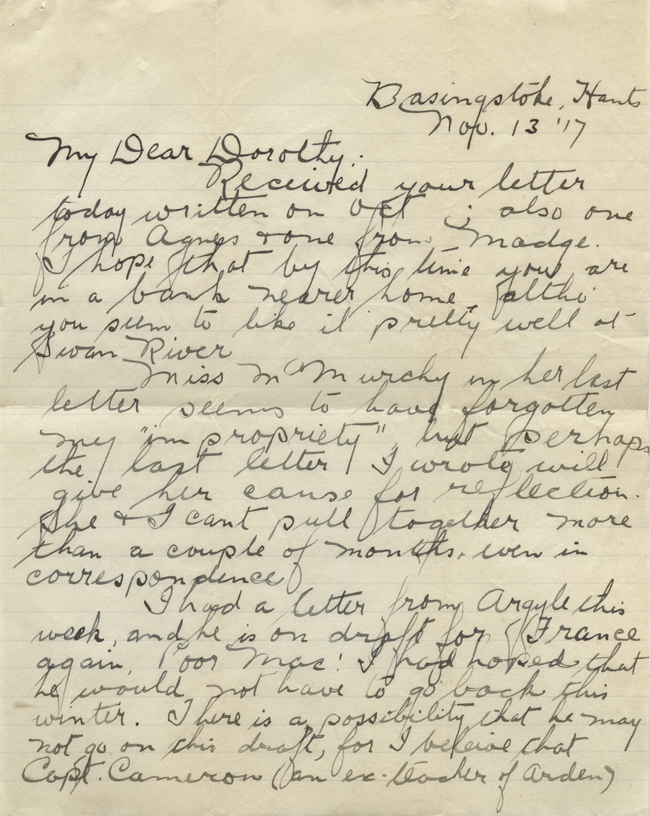 Basingstoke, Hants
Nov. 13 '17
My Dear Dorothy:
Received your letter
today written on Oct ; also one
from Agnes & one from Madge.
I hope that by this time you are
in a bank nearer home, altho'
you seem to like it pretty well at
Swan River
Miss McMurchy in her last
letter seems to have forgotten
my "impropriety", but perhaps
the last letter I wrote will
give her cause for reflection.
She & I cant pull together more
than a couple of months, even in
correspondence
I had a letter from Argyle this
week, and he is on draft for France
again. Poor Mac! I had hoped that
he would not have to go back this
winter. There is a possibility that he may
not go on this draft, for I beleive that
Capt. Cameron (an ex-teacher of Arden)